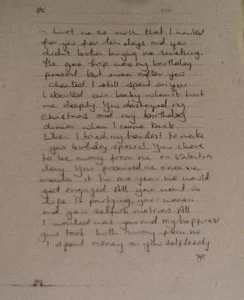 hurt me so much that I waited
for you for ten days and you
didn't bother buying me something.
The gae trip was my birthday
present but even after you
cheated I still spent on you
I aborted our baby when it hurt
me deeply. You destroyed my
Christmas and my birthday
dinner when I came back.
When I tried my hardest to make
you birthday special. You chose
to be away from me on Valentines
day. You promised me once we
make it to one year we would
get engaged. All you want in
life is partying, your women
and your selfish motives. All
I wanted was you and my happiness
you took both away from me
I spent money on you selflessly